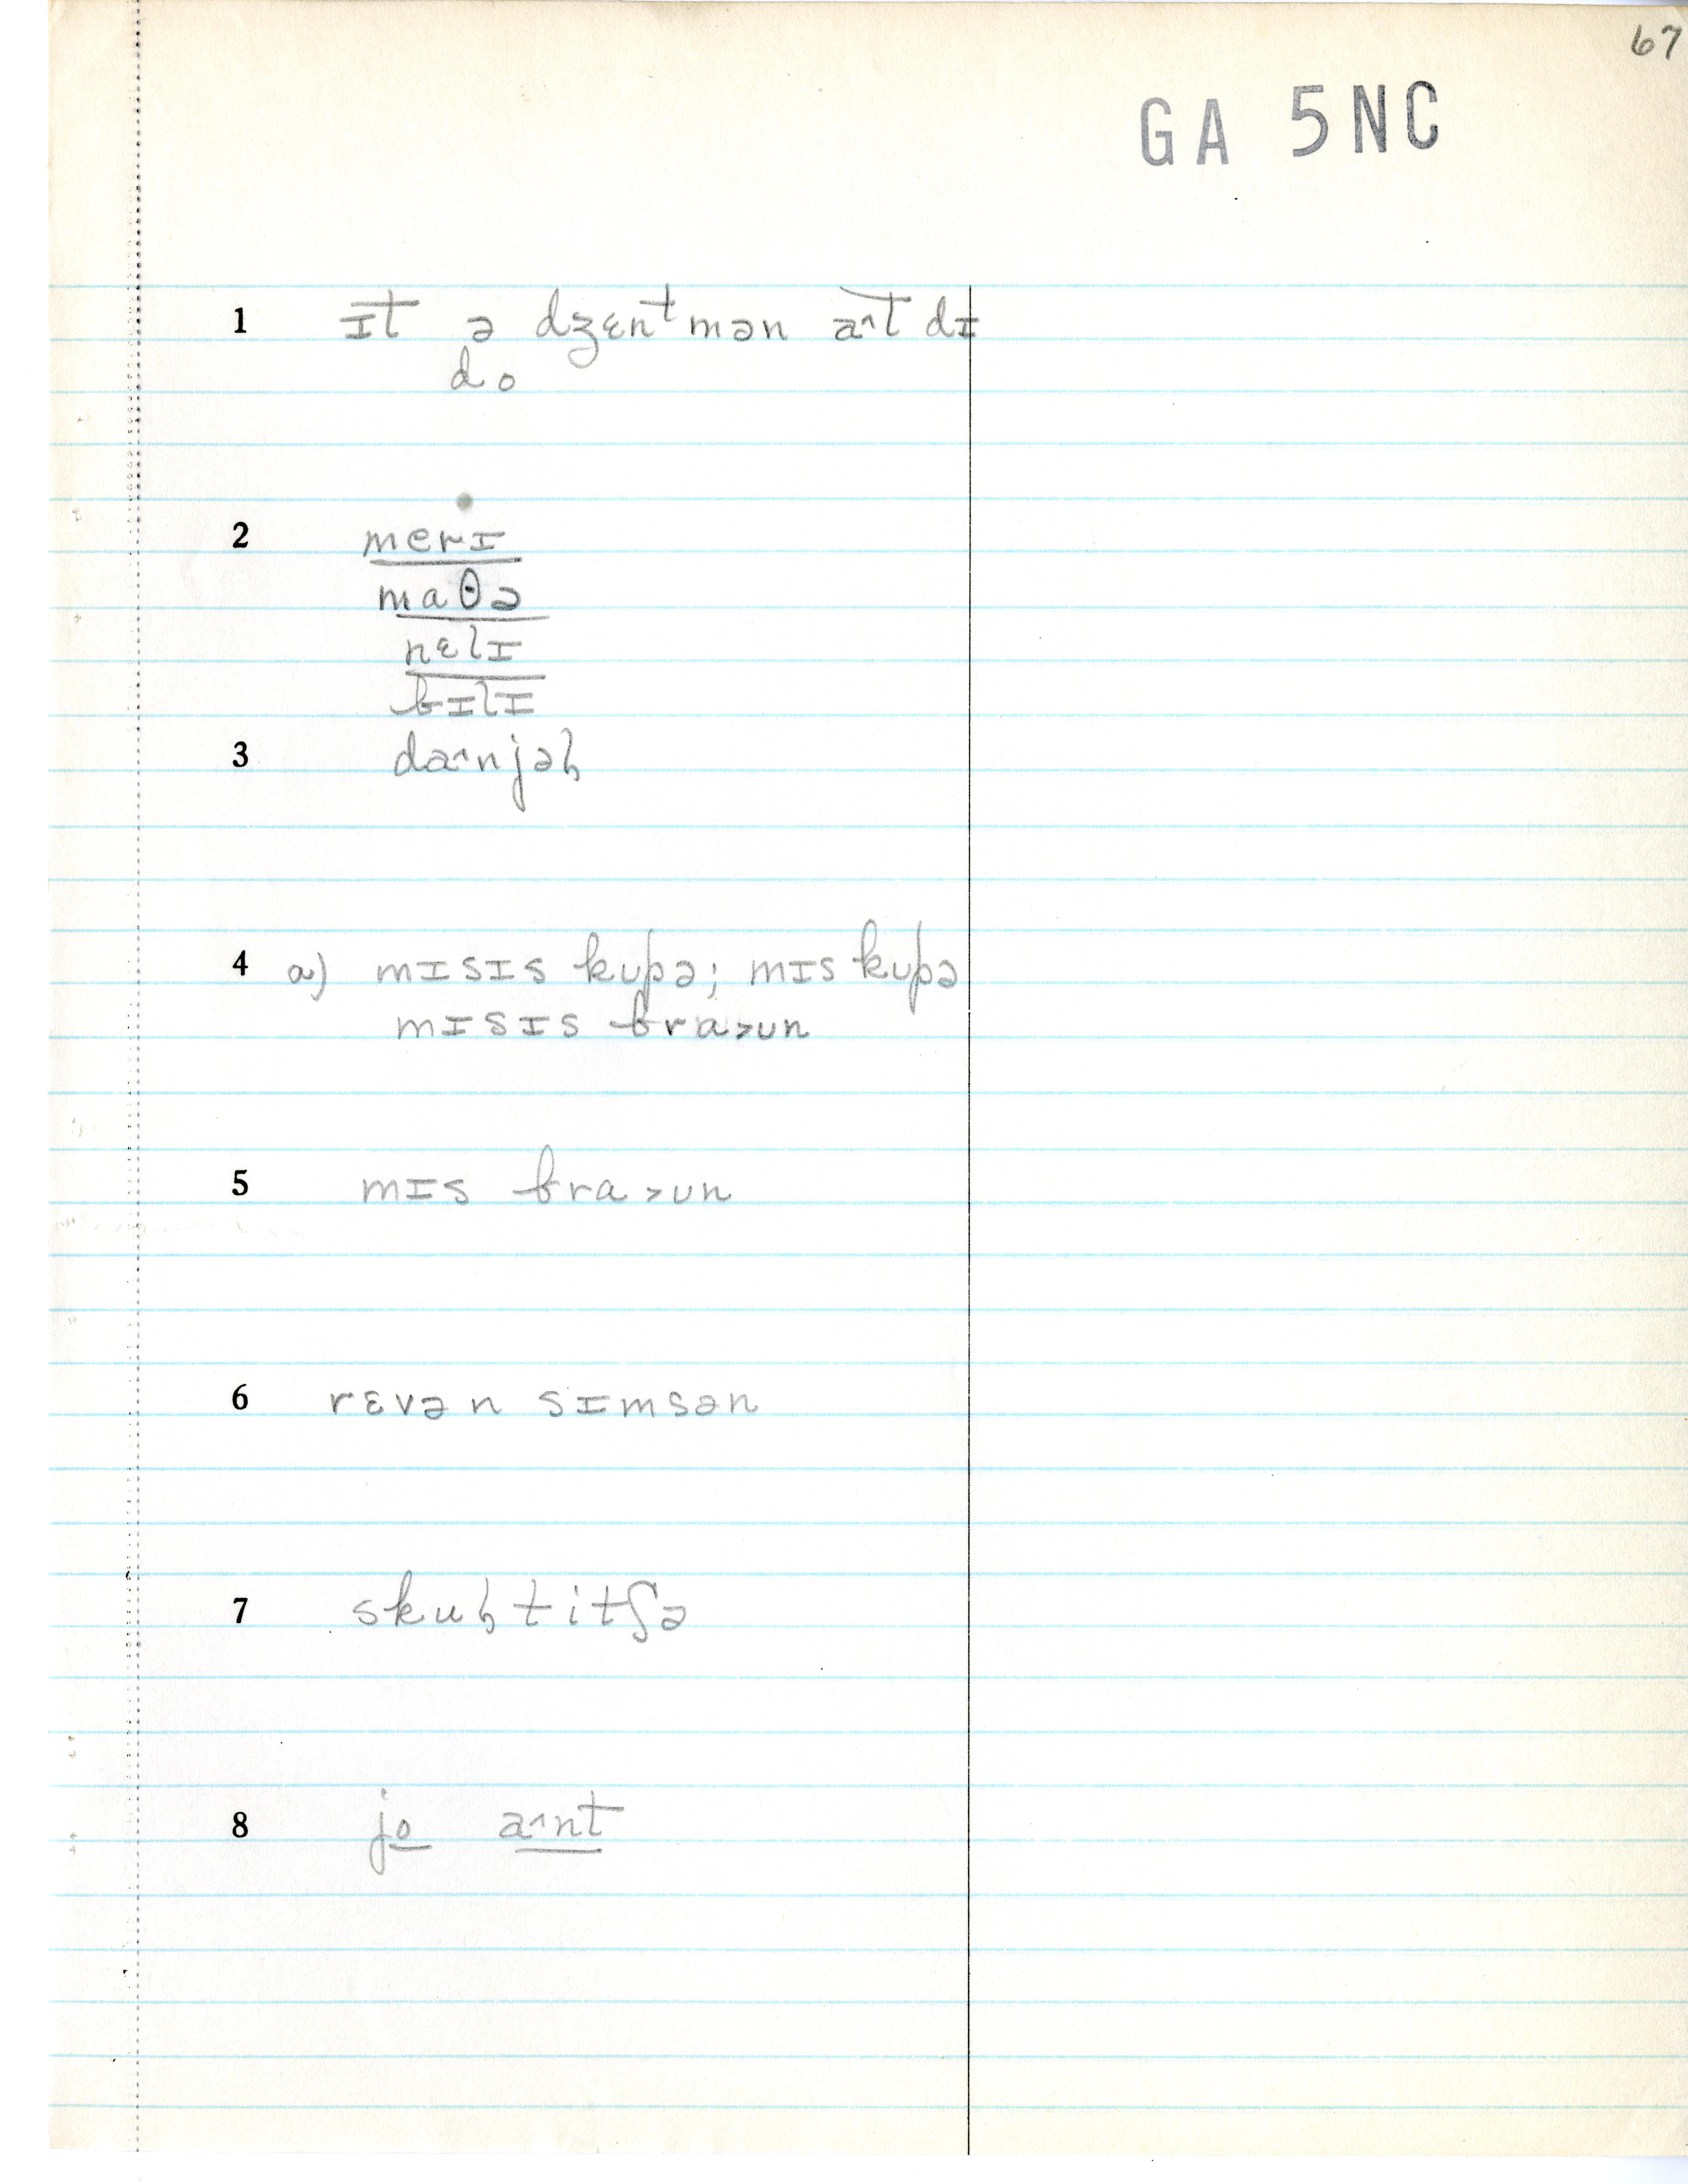 67
GA 5NC
1 ɪt ə dʒɛnᵗmən a˄t dɪ
do
2 merɪ
maθə
nɛlɪ
bɪlɪ
3 da˄njəl
4 a) mɪsɪs kupə; mɪs kupə
mɪsɪs bra˃un
5 mɪs bra˃un
6 rɛvən sɪmsən
7 skul titʃə
8 jo a˄nt